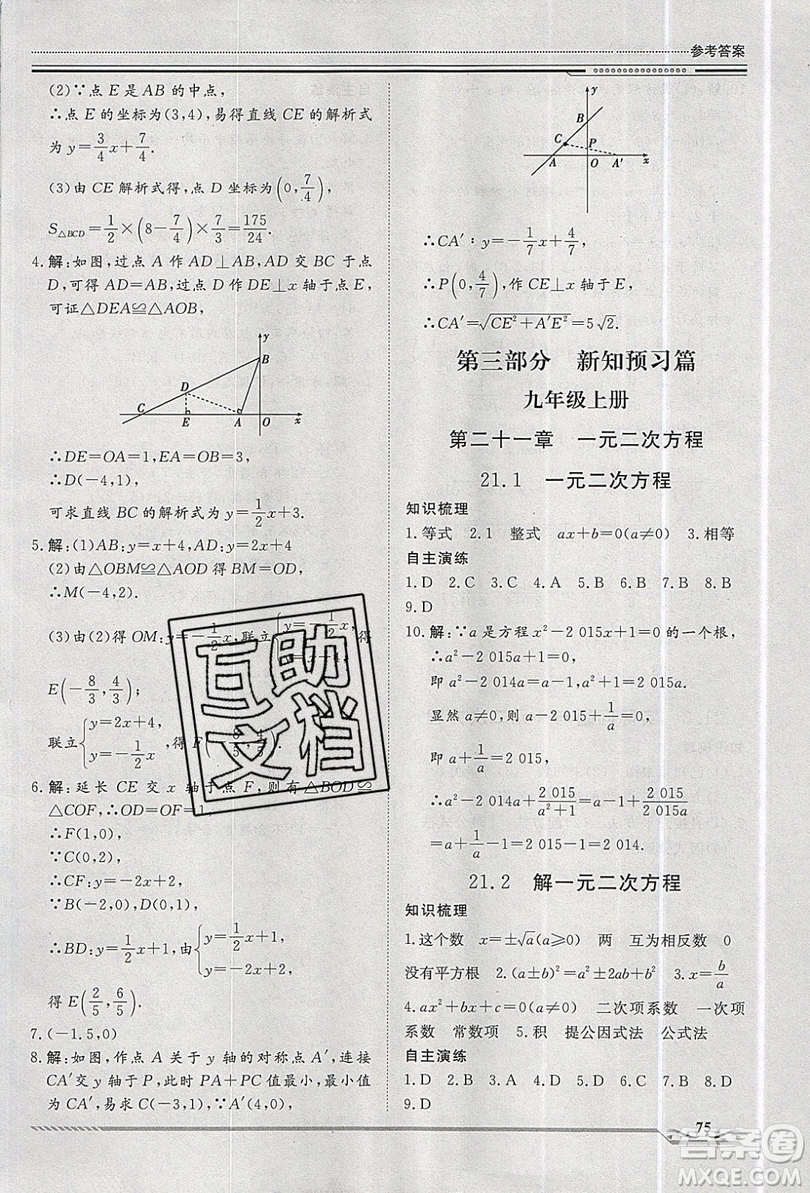 参考答案
(2)∵点 E 是 AB 的中点,
∴点 E 的坐标为(3,4),易得直线 CE 的解析式
为 y=3/4x+7/4.
(3)由 CE 解析式得,点 D 坐标为(0,7/4),
S△BCD=1/2×(8-7/4)×7/3=175/24.
4.解:如图,过点 A 作 AD⊥AB,AD 交 BC 于点
D,可得 AD=AB,过点 D 作 DE⊥x 轴于点 E,
可证△DEA≌△AOB,
y
B
D
C E A O x
∴DE=OA=1,EA=OB=3,
∴D(-4,1),
可求直线 BC 的解析式为 y=1/2x+3.
5.解:(1)AB:y=x+4,AD:y=2x+4
(2)由△OBM≌△ADO 得 BM=OD,
∴M(-4,2).
(3)由(2)得 OM:y=-1/2x,联立{y=-1/2x, 得
E(-8/3,4/3);
联立{y=2x+4, y=-1/2x, 得
6.解:延长 CE 交 x 轴于点 F,则有△BOD≌
△COF,∴OD=OF=1,
∴F(1,0)
∵C(0,2)
∴CF:y=-2x+2
∵B(-2,0),D(0,1)
∴BD:y=1/2x+1,由{y=1/2x+1 y=-2x+2
得 E(2/5,6/5).
7.(-1.5,0)
8.解:如图,作点 A 关于 y 轴的对称点 A′,连接
CA′交 y 轴于 P,此时 PA+PC 值最小,最小值
为 CA′,易求 C(-3,1),∵A′(4,0),
y
B
C P
A O A′ x
∴CA′:y=-1/7x+4/7
∴P(0,4/7),作 CE⊥x 轴于 E,
∴CA′=√(CE²+A′E²)=5√2.
第三部分 新知预习篇
九年级上册
第二十一章 一元二次方程
21.1 一元二次方程
知识梳理
1.等式 2.1 整式 ax+b=0(a≠0) 3.相等
自主演练
1.D 2.C 3.C 4.D 5.A 6.C 7.B 8.D
9.D
10.解:∵a 是方程 x²-2 015x+1=0 的一个根,
∴a²-2 015a+1=0,
即 a²-2 014a+1=2 015a.
显然 a≠0,则 a-2 015+1/a=0,
即 a+1/a=2 015.
∴a²-2 014a+2 015/(a²+1)=a-1+2 015/2 015a
=a+1/a-1=2 015-1=2 014.
21.2 解一元二次方程
知识梳理
1.这个数 x=±√a(a≥0) 两 互为相反数 0
没有平方根 2.(a±b)²=a±2ab+b² 3.x=b/a
4.ax²+bx+c=0(a≠0) 二次项系数 一次项
系数 常数项 5.积 提公因式法 公式法
自主演练
1.D 2.A 3.D 4.B 5.A 6.C 7.B 8.D
9.D
75
互助
文档
答案圈
MXQE.COM